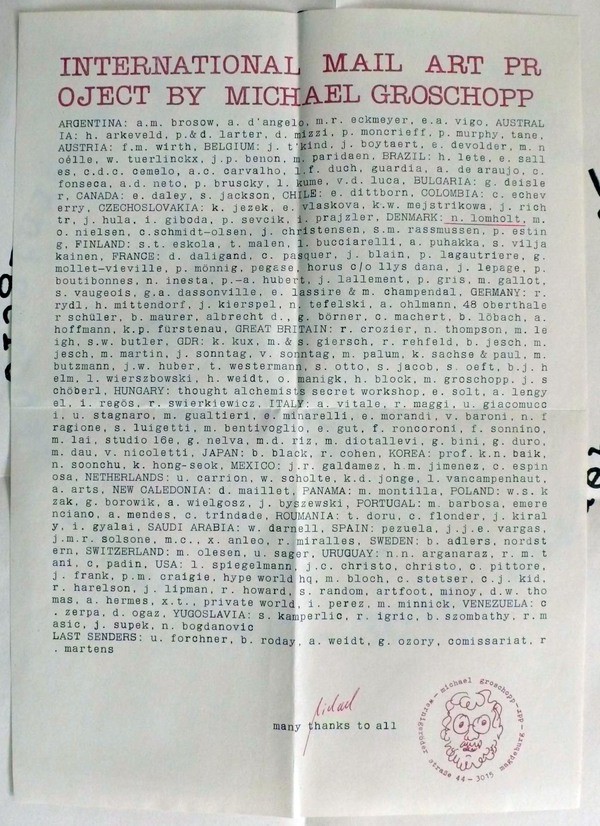 INTERNATIONAL MAIL ART PR
OJECT BY MICHAEL GROSCHOPP
ARGENTINA: a.m. brosow, a. d'angelo, m.r. eckmeyer, e.a. vigo, AUSTRAL
IA: h. arkeveld, p.&d. larter, d. mizzi, p. moncrieff, p. murphy, tane,
AUSTRIA: f.m. wirth, BELGIUM: j. t'kind, j. boytaert, e. devolder, m.n
oëlle, w. tuerlinckx, j.p. benon, m. paridaen, BRAZIL: h. lete, e. sall
es, c.d.c. cemelo, a.c. carvalho, l.f. duch, guardia, a. de araujo, c.
fonseca, a.d. neto, p. bruscky, l. kume, v.d. luca, BULGARIA: g. deisle
r, CANADA: e. daley, s. jackson, CHILE: e. dittborn, COLOMBIA: c. echev
erry, CZECHOSLOVAKIA: k. jezek, e. vlaskova, k.w. mejstrikowa, j. rich
tr, j. hula, i. giboda, p. sevcik, i. prajzler, DENMARK: n. lomholt, m.
o. nielsen, c.schmidt-olsen, j. christensen, s.m. rassmussen, p. estin
g, FINLAND: s.t. eskola, t. malen, l. bucciarelli, a. puhakka, s. vilja
kainen, FRANCE: d. daligand, c. pasquer, j. blain, p. lagautriere, g.
mollet-vieville, p. mönnig, pegase, horus c/o llys dana, j. lepage, p.
boutibonnes, n. inesta, p.-a. hubert, j. lallement, p. gris, m. gallot,
s. vaugeois, g.a. dassonville, e. lassire & m. champendal, GERMANY: r.
rydl, h. mittendorf, j. kierspel, n. tefelski, a. ohlmann, 48 oberthale
r schüler, b. maurer, albrecht d., g. börner, c. machert, b. löbach, a.
hoffmann, k.p. fürstenau, GREAT BRITAIN: r. crozier, n. thompson, m. le
igh, s.w. butler, GDR: k. kux, m. & s. giersch, r. rehfeld, b. jesch, m.
jesch, m. martin, j. sonntag, v. sonntag, m. palum, k. sachse & paul, m.
butzmann, j.w. huber, t. westermann, s. otto, s. jacob, s. oeft, b.j. h
elm, l. wierszbowski, h. weidt, o. manigk, h. block, m. groschopp. j. s
chöberl, HUNGARY: thought alchemists secret workshop, e. solt, a. lengy
el, i. regös, r. swierkiewicz, ITALY: a. vitale, r. maggi, u. giacomucc
i, u. stagnaro, m. gualtieri, e. minarelli, e. morandi, v. baroni, n. f
ragione, s. luigetti, m. bentivoglio, e. gut, f. roncoroni, f. sonnino,
m. lai, studio 16e, g. nelva, m.d. riz, m. diotallevi, g. bini, g. duro,
m. dau, v. nicoletti, JAPAN: b. black, r. cohen, KOREA: prof. k.n. baik,
n. soonchu, k. hong-seok, MEXICO: j.r. galdamez, h.m. jimenez, c. espin
osa, NETHERLANDS: u. carrion, w. scholte, k.d. jonge, l. vancampenhaut,
a. arts, NEW CALEDONIA: d. maillet, PANAMA: m. montilla, POLAND: w.s. k
zak, g. borowik, a. wielgosz, j. byszewski, PORTUGAL: m. barbosa, emere
nciano, a. mendes, c. trindade, ROUMANIA: t. doru, c. flonder, j. kiral
y, i. gyalai, SAUDI ARABIA: w. darnell, SPAIN: pezuela, j.j.e. vargas,
j.m.r. solsone, m.c., x. anleo, r. miralles, SWEDEN: b. adlers, nordst
ern, SWITZERLAND: m. olesen, u. sager, URUGUAY: n.n. arganaraz, r. m. t
ani, c, padin, USA: l. spiegelmann, j.c. christo, christo, c. pittore,
j. frank, p.m. craigie, hype world hq, m. bloch, c. stetser, c.j. kid,
r. harelson, j. lipman, r. howard, s. random, artfoot, minoy, d.w. tho
mas, a. hermes, x.t., private world, i. perez, m. minnick, VENEZUELA: c
. zerpa, d. ogaz, YUGOSLAVIA: s. kamperlic, r. igric, b. szombathy, r. m
asic, j. supek, n. bogdanovic
LAST SENDERS: u. forchner, b. roday, a. weidt, g. ozory, comissariat, r
. martens
michael
many thanks to all
michael groschopp - ddr - magdeburg - 3015
straße 44